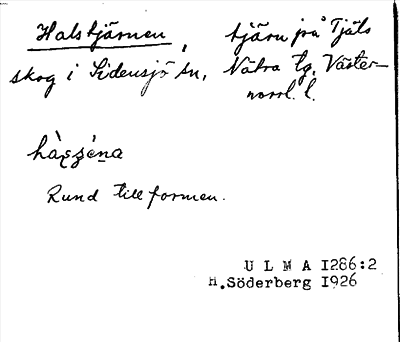 Halstjärnen, tjärn på Tjäls
skog i Sidensjö sn, Nätra tg, Väster-
norrl. l.
Rund till formen.
U L M A I286:2
H.Söderberg I926